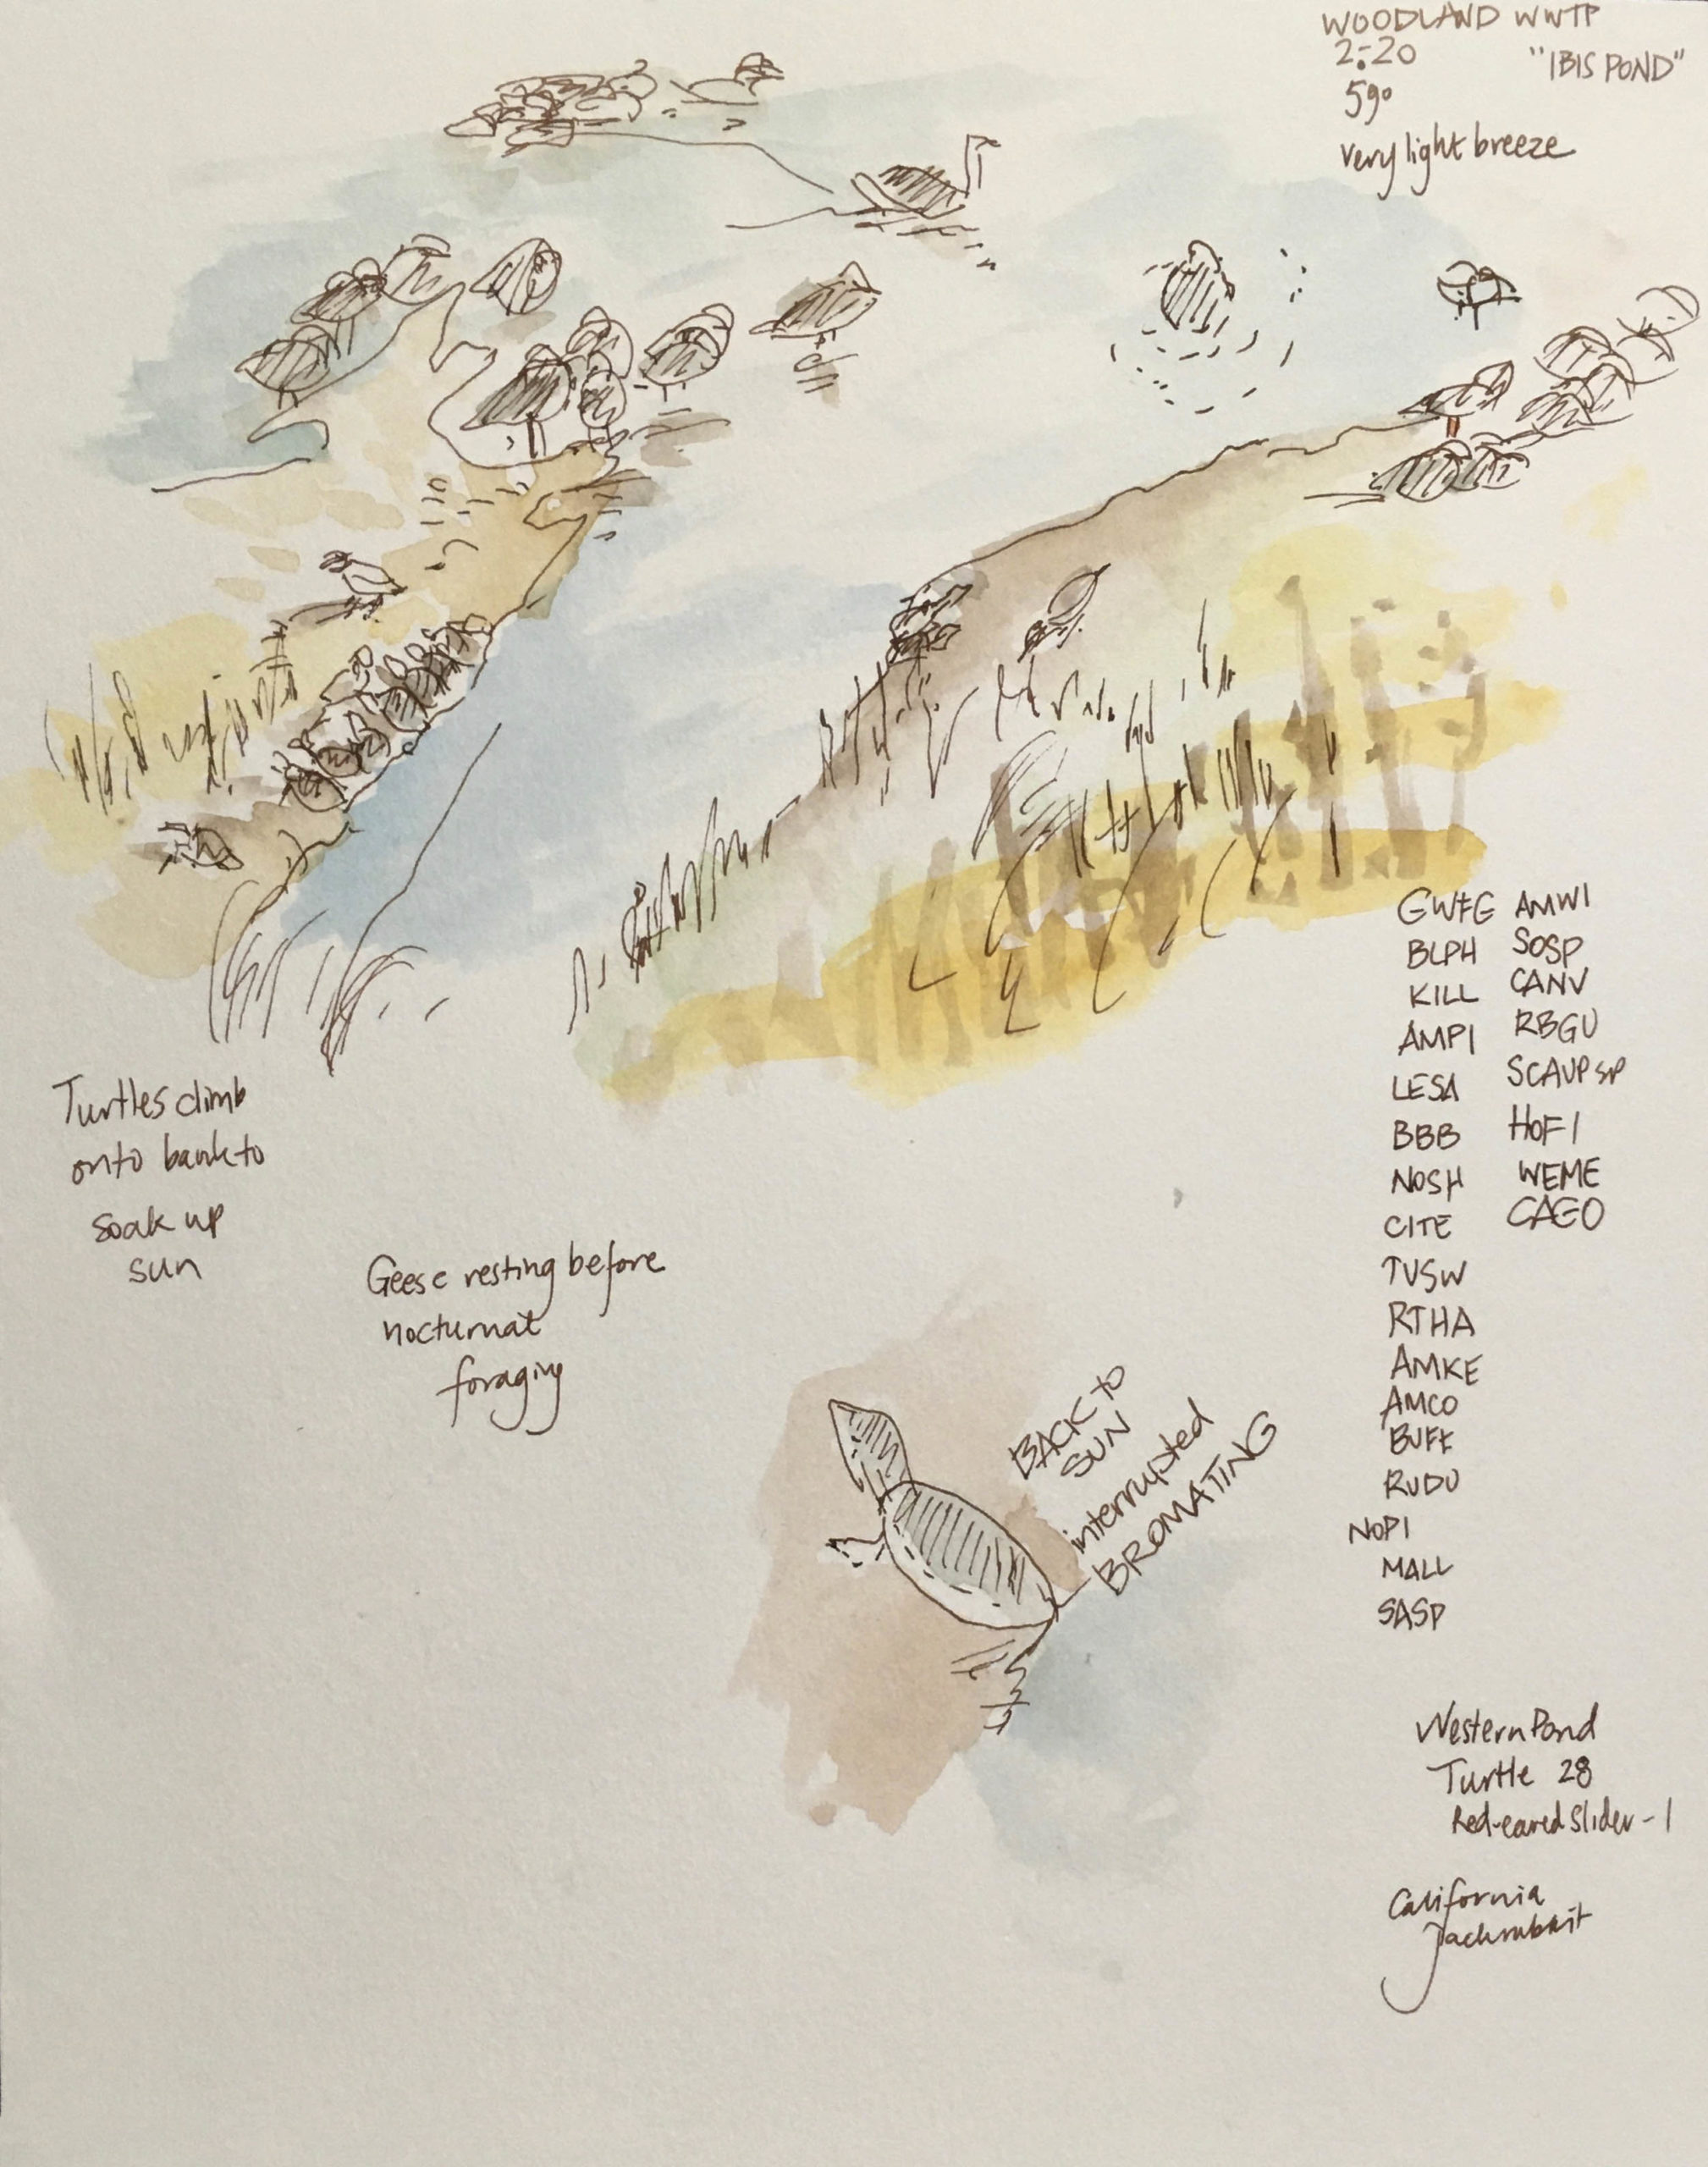 WOODLAND WWTP
2:20 "IBIS POND"
59°
very light breeze
GWFG AMWI
BLPH SOSP
KILL CANV
AMPI RBGU
LESA SCAUP sp
BBB HOFI
NOSH WEME
CITE CAGO
TUSW
RTHA
AMKE
AMCO
BUFF
RUDU
NOPI
MALL
SASP
Turtles climb
onto bank to
soak up
sun
Geese resting before
nocturnal
foraging
BACK to
SUN
interrupted
BROMATING
Western Pond
Turtle 28
Red-eared Slider - 1
California
Jackrabbit